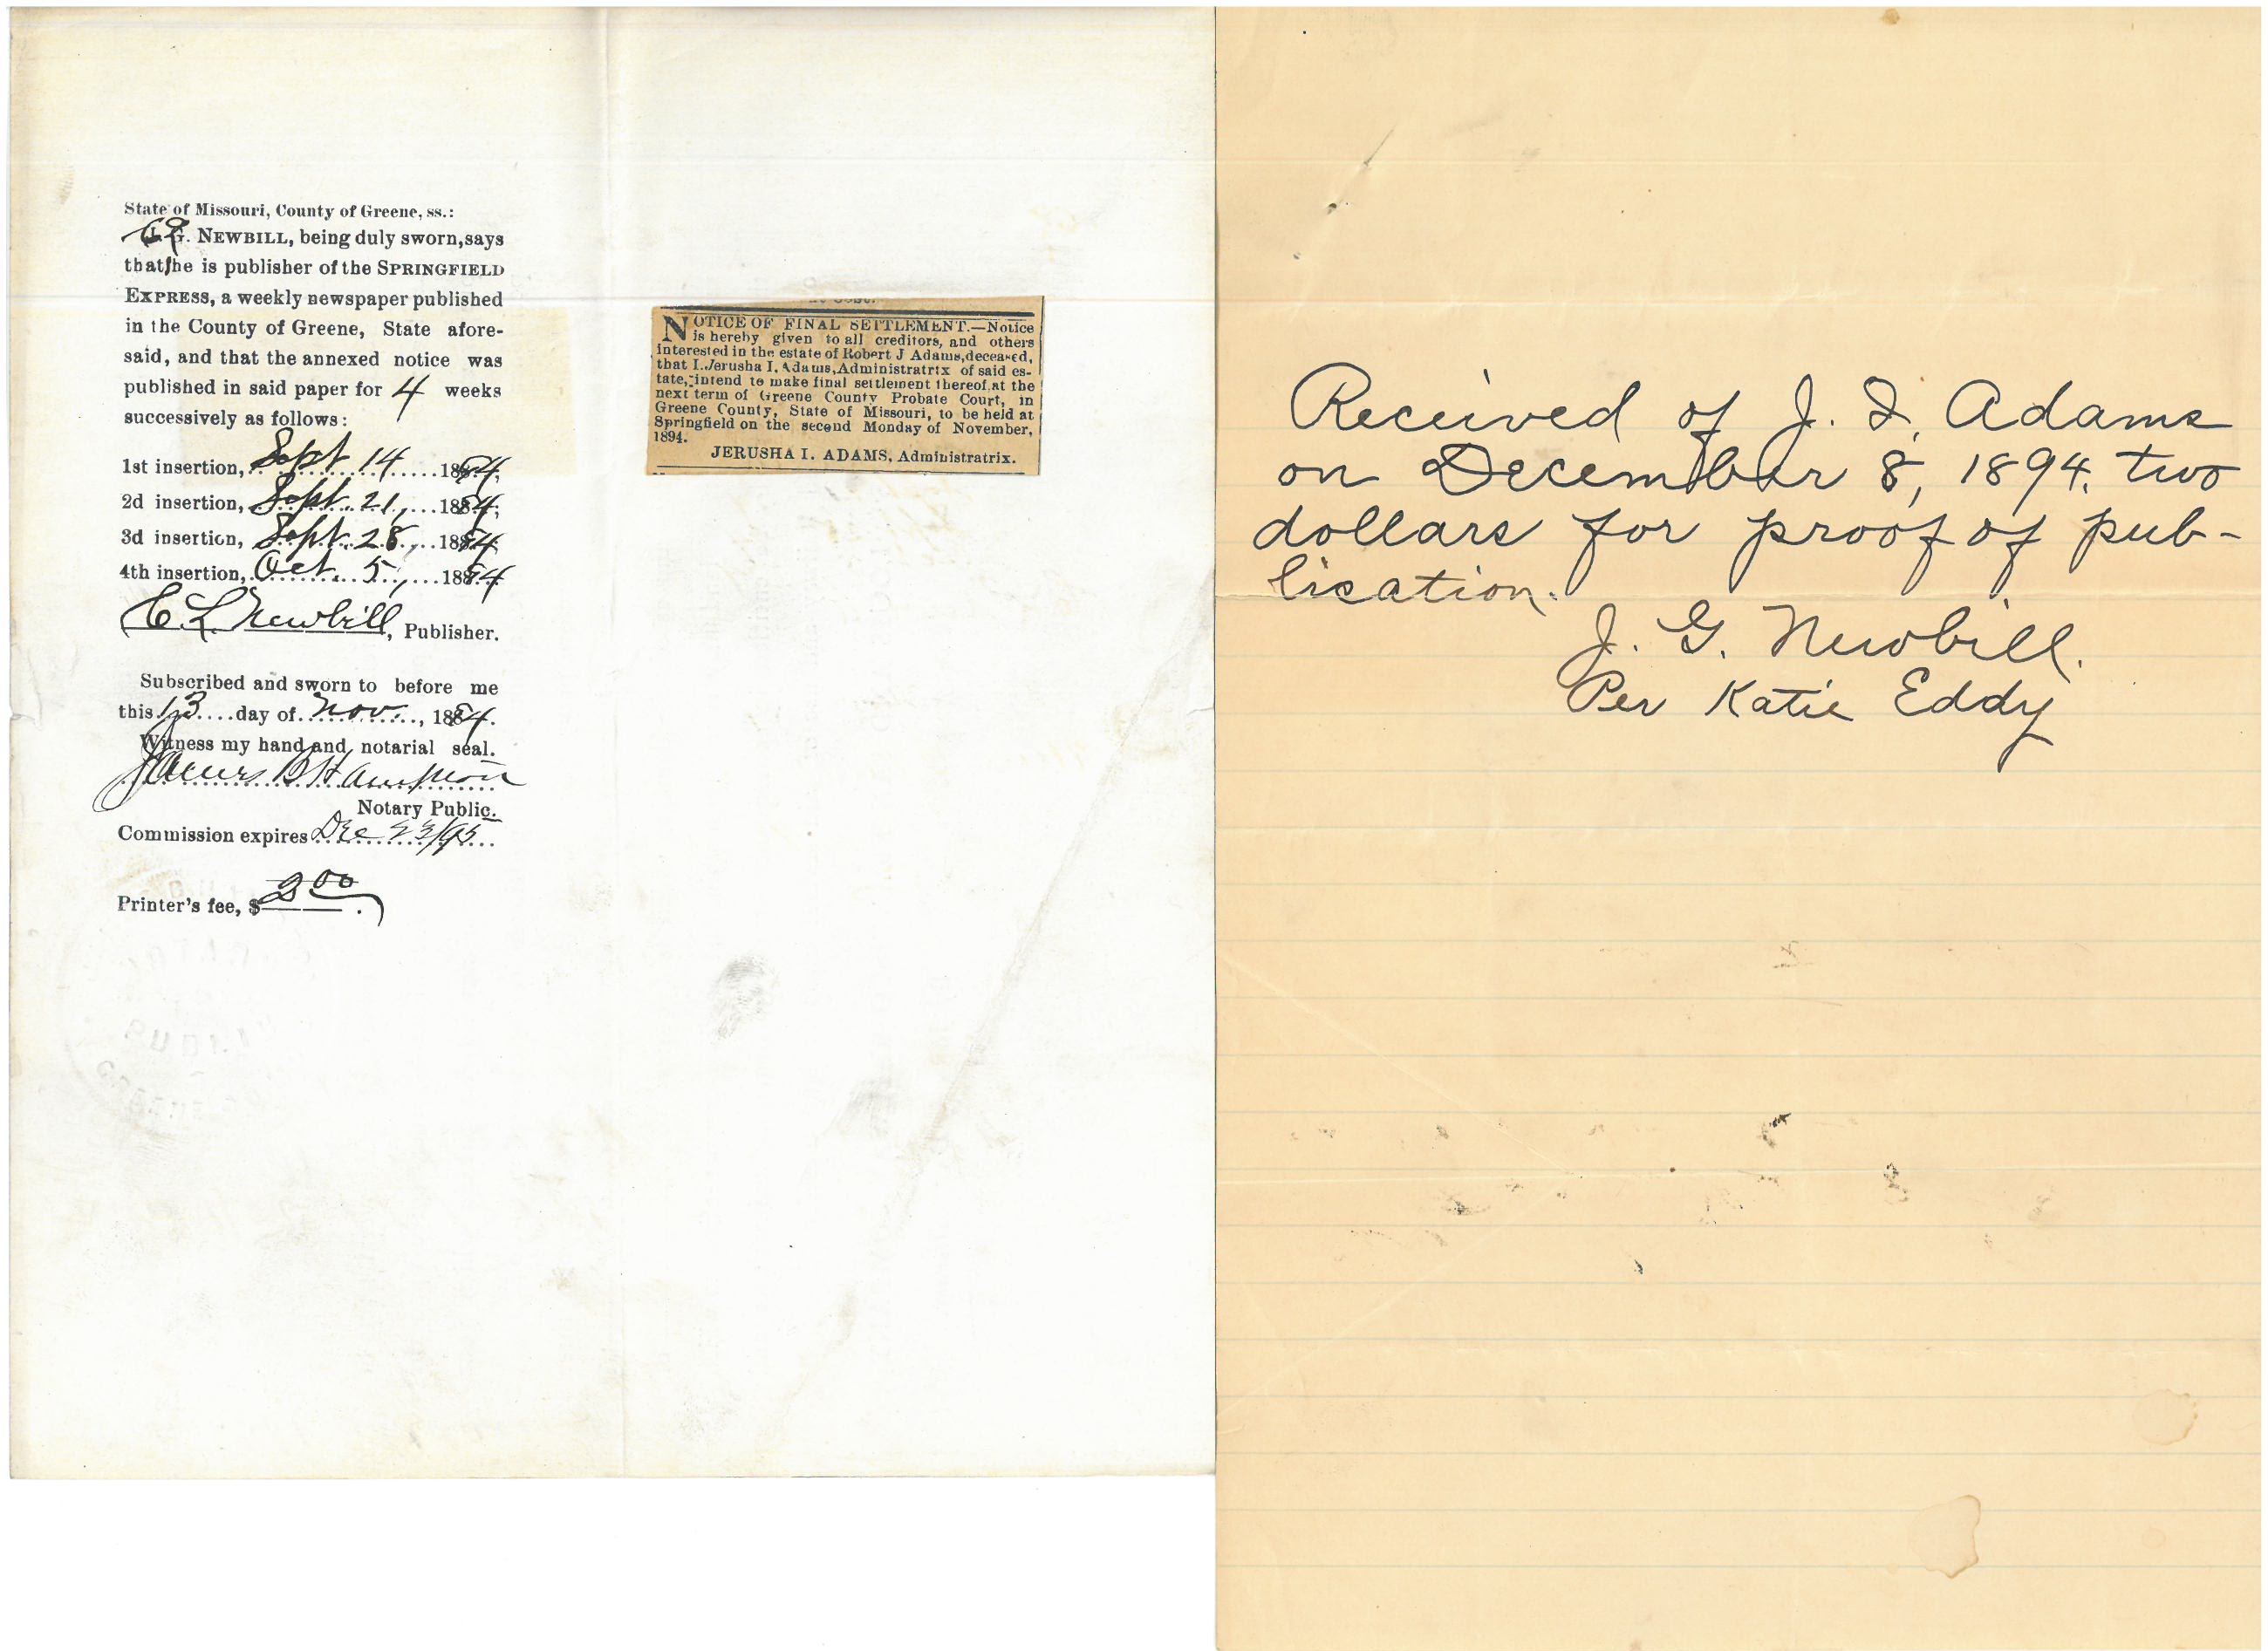 State of Missouri, County of Greene, ss.:
C. L. NEWBILL, being duly sworn, says
that she is publisher of the SPRINGFIELD
EXPRESS, a weekly newspaper published
in the County of Greene, State afore-
said, and that the annexed notice was
published in said paper for 4 weeks
successively as follows:
1st insertion, Sept 14 1894,
2d insertion, Sept. 21, 1894,
3d insertion, Sept. 28, 1894
4th insertion, Oct. 5, 1894
C. L. Newbill, Publisher.
Subscribed and sworn to before me
this 13 day of Nov., 1894.
Witness my hand and notarial seal.
James B Hampton
Notary Public.
Commission expires Dec 23/95
Printer's fee, $2 00
at cost.
NOTICE OF FINAL SETTLEMENT.—Notice
is hereby given to all creditors, and others
interested in the estate of Robert J Adams, deceased,
that I. Jerusha I. Adams, Administratrix of said es-
tate, intend to make final settlement thereof, at the
next term of Greene County Probate Court, in
Greene County, State of Missouri, to be held at
Springfield on the second Monday of November,
1894.
JERUSHA I. ADAMS, Administratrix.
Received of J. I. Adams
on December 8, 1894. two
dollars for proof of pub-
lication.
J. G. Newbill.
Per Katie Eddy